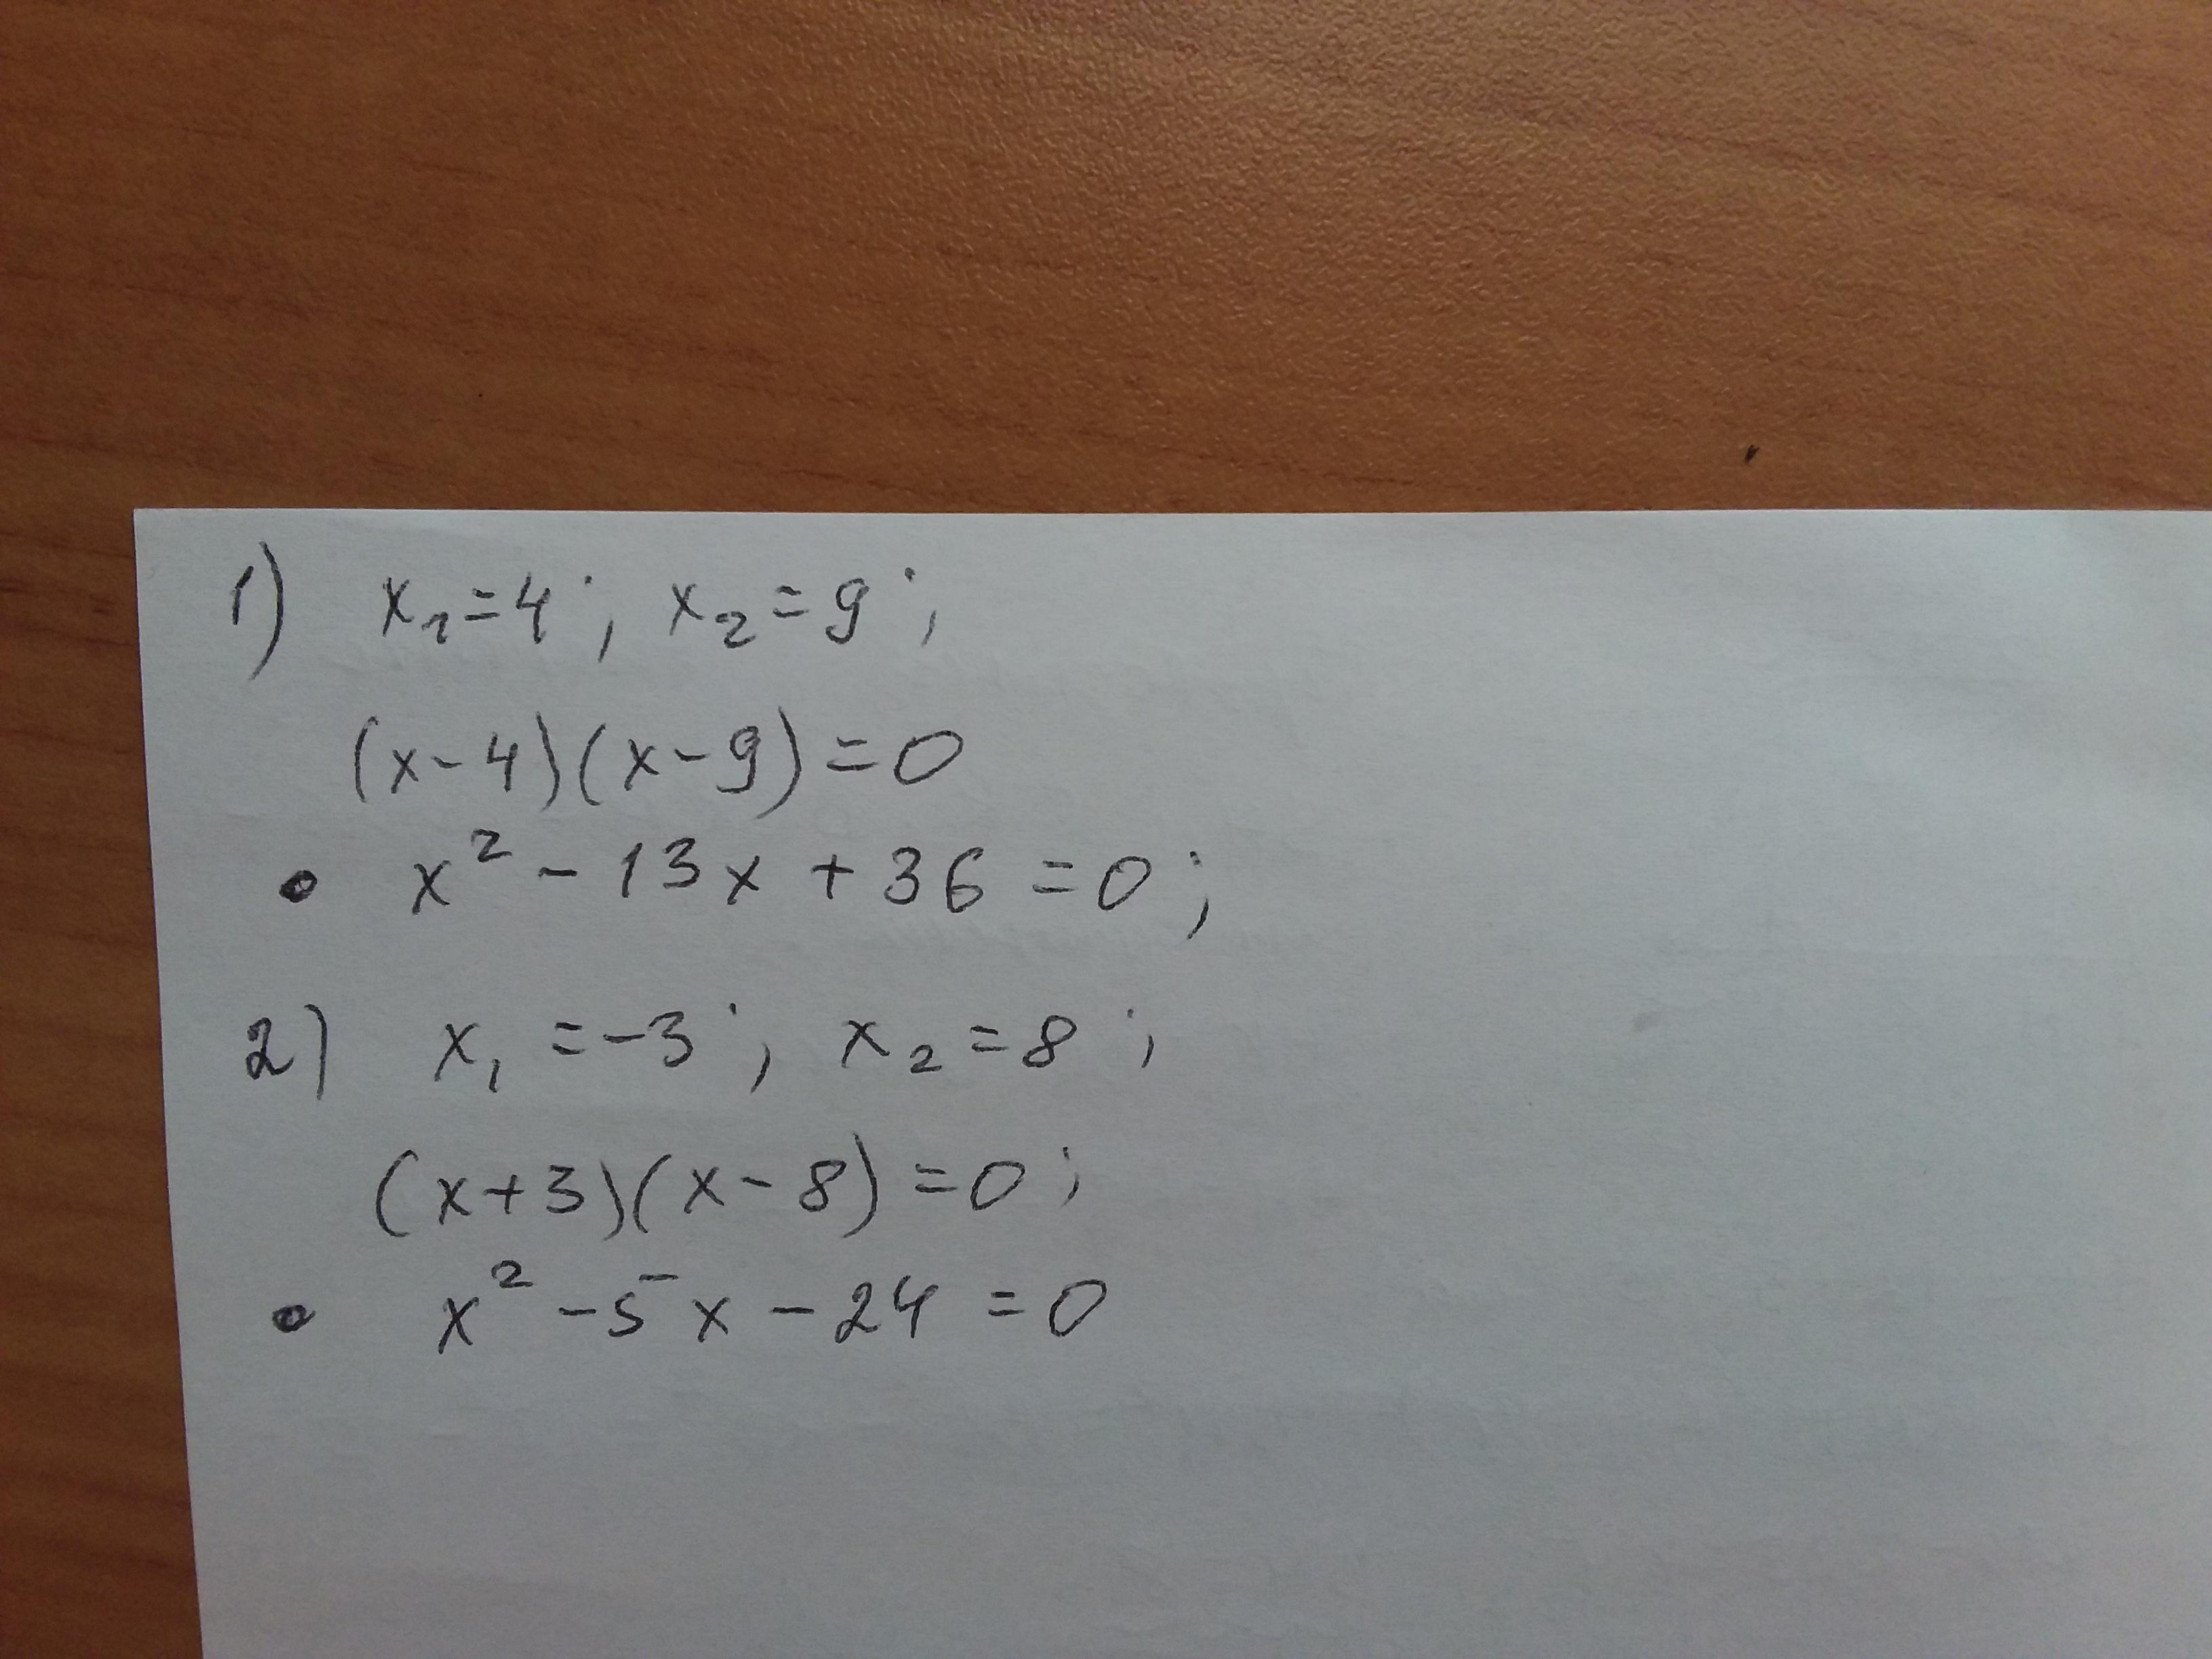 1) x₁=4; x₂=9;
(x-4)(x-9)=0
• x² - 13x + 36 = 0;
2) x₁ = -3; x₂ = 8;
(x+3)(x-8) = 0;
• x² - 5x - 24 = 0